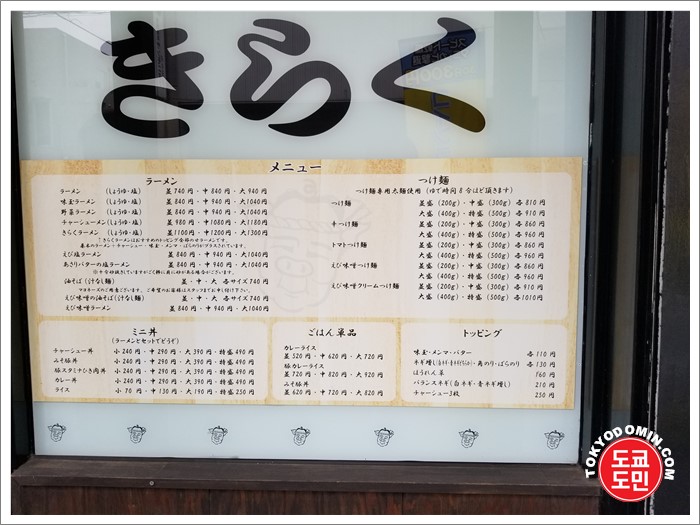 きらく
メニュー
ラーメン
ラーメン (しょうゆ・塩) 並 740円・中 840円・大 940円
味玉ラーメン (しょうゆ・塩) 並 840円・中 940円・大1040円
野菜ラーメン (しょうゆ・塩) 並 840円・中 940円・大1040円
チャーシューメン(しょうゆ・塩) 並 980円・中1080円・大1180円
きらくラーメン(しょうゆ・塩) 並1100円・中1200円・大1300円
↑きらくラーメンはおすすめのトッピング全部のせラーメンです。
基本のラーメン+チャーシュー・味玉・メンマ・ばらのりがプラスされています。
えび塩ラーメン 並 840円・中 940円・大1040円
あさりバターの塩ラーメン 並 840円・中 940円・大1040円
油そば(汁なし麺) 並・中・大 各サイズ740円
マヨネーズのご用意ございます。ご希望のお客様はスタッフまでお申し付け下さい。
えび味噌の油そば(汁なし麺) 並・中・大 各サイズ940円
えび味噌ラーメン 並 840円・中 940円・大1040円
つけ麺
つけ麺専用太麺使用 (ゆで時間8分ほど頂きます)
つけ麺 並盛 (200g)・中盛 (300g) 各 810円
大盛 (400g)・特盛 (500g) 各 910円
辛つけ麺 並盛 (200g)・中盛 (300g) 各 860円
大盛 (400g)・特盛 (500g) 各 960円
トマトつけ麺 並盛 (200g)・中盛 (300g) 各 860円
大盛 (400g)・特盛 (500g) 各 960円
えび味噌つけ麺 並盛 (200g)・中盛 (300g) 各 860円
大盛 (400g)・特盛 (500g) 各 960円
えび味噌クリームつけ麺 並盛 (200g)・中盛 (300g) 各 910円
大盛 (400g)・特盛 (500g) 各1010円
ミニ丼
(ラーメンとセットでどうぞ)
チャーシュー丼 小 240円・中 290円・大 390円・特盛 490円
みそ豚丼 小 240円・中 290円・大 390円・特盛 490円
豚スタミナひき肉丼 小 240円・中 290円・大 390円・特盛 490円
カレー丼 小 240円・中 290円・大 390円・特盛 490円
ライス 小 70円・中 130円・大 190円・特盛 250円
ごはん単品
カレーライス
並 520円・中 620円・大 720円
豚カレーライス
並 720円・中 820円・大 920円
みそ豚丼
並 620円・中 720円・大 820円
トッピング
味玉・メンマ・バター 各 110円
ネギ増し(白ネギ・青ネギどちらか)・角のり・ばらのり 各 130円
ほうれん草 160円
バランスネギ(白ネギ・青ネギ増し) 210円
チャーシュー3枚 250円
TOKYODOMIN.COM
도쿄
도민